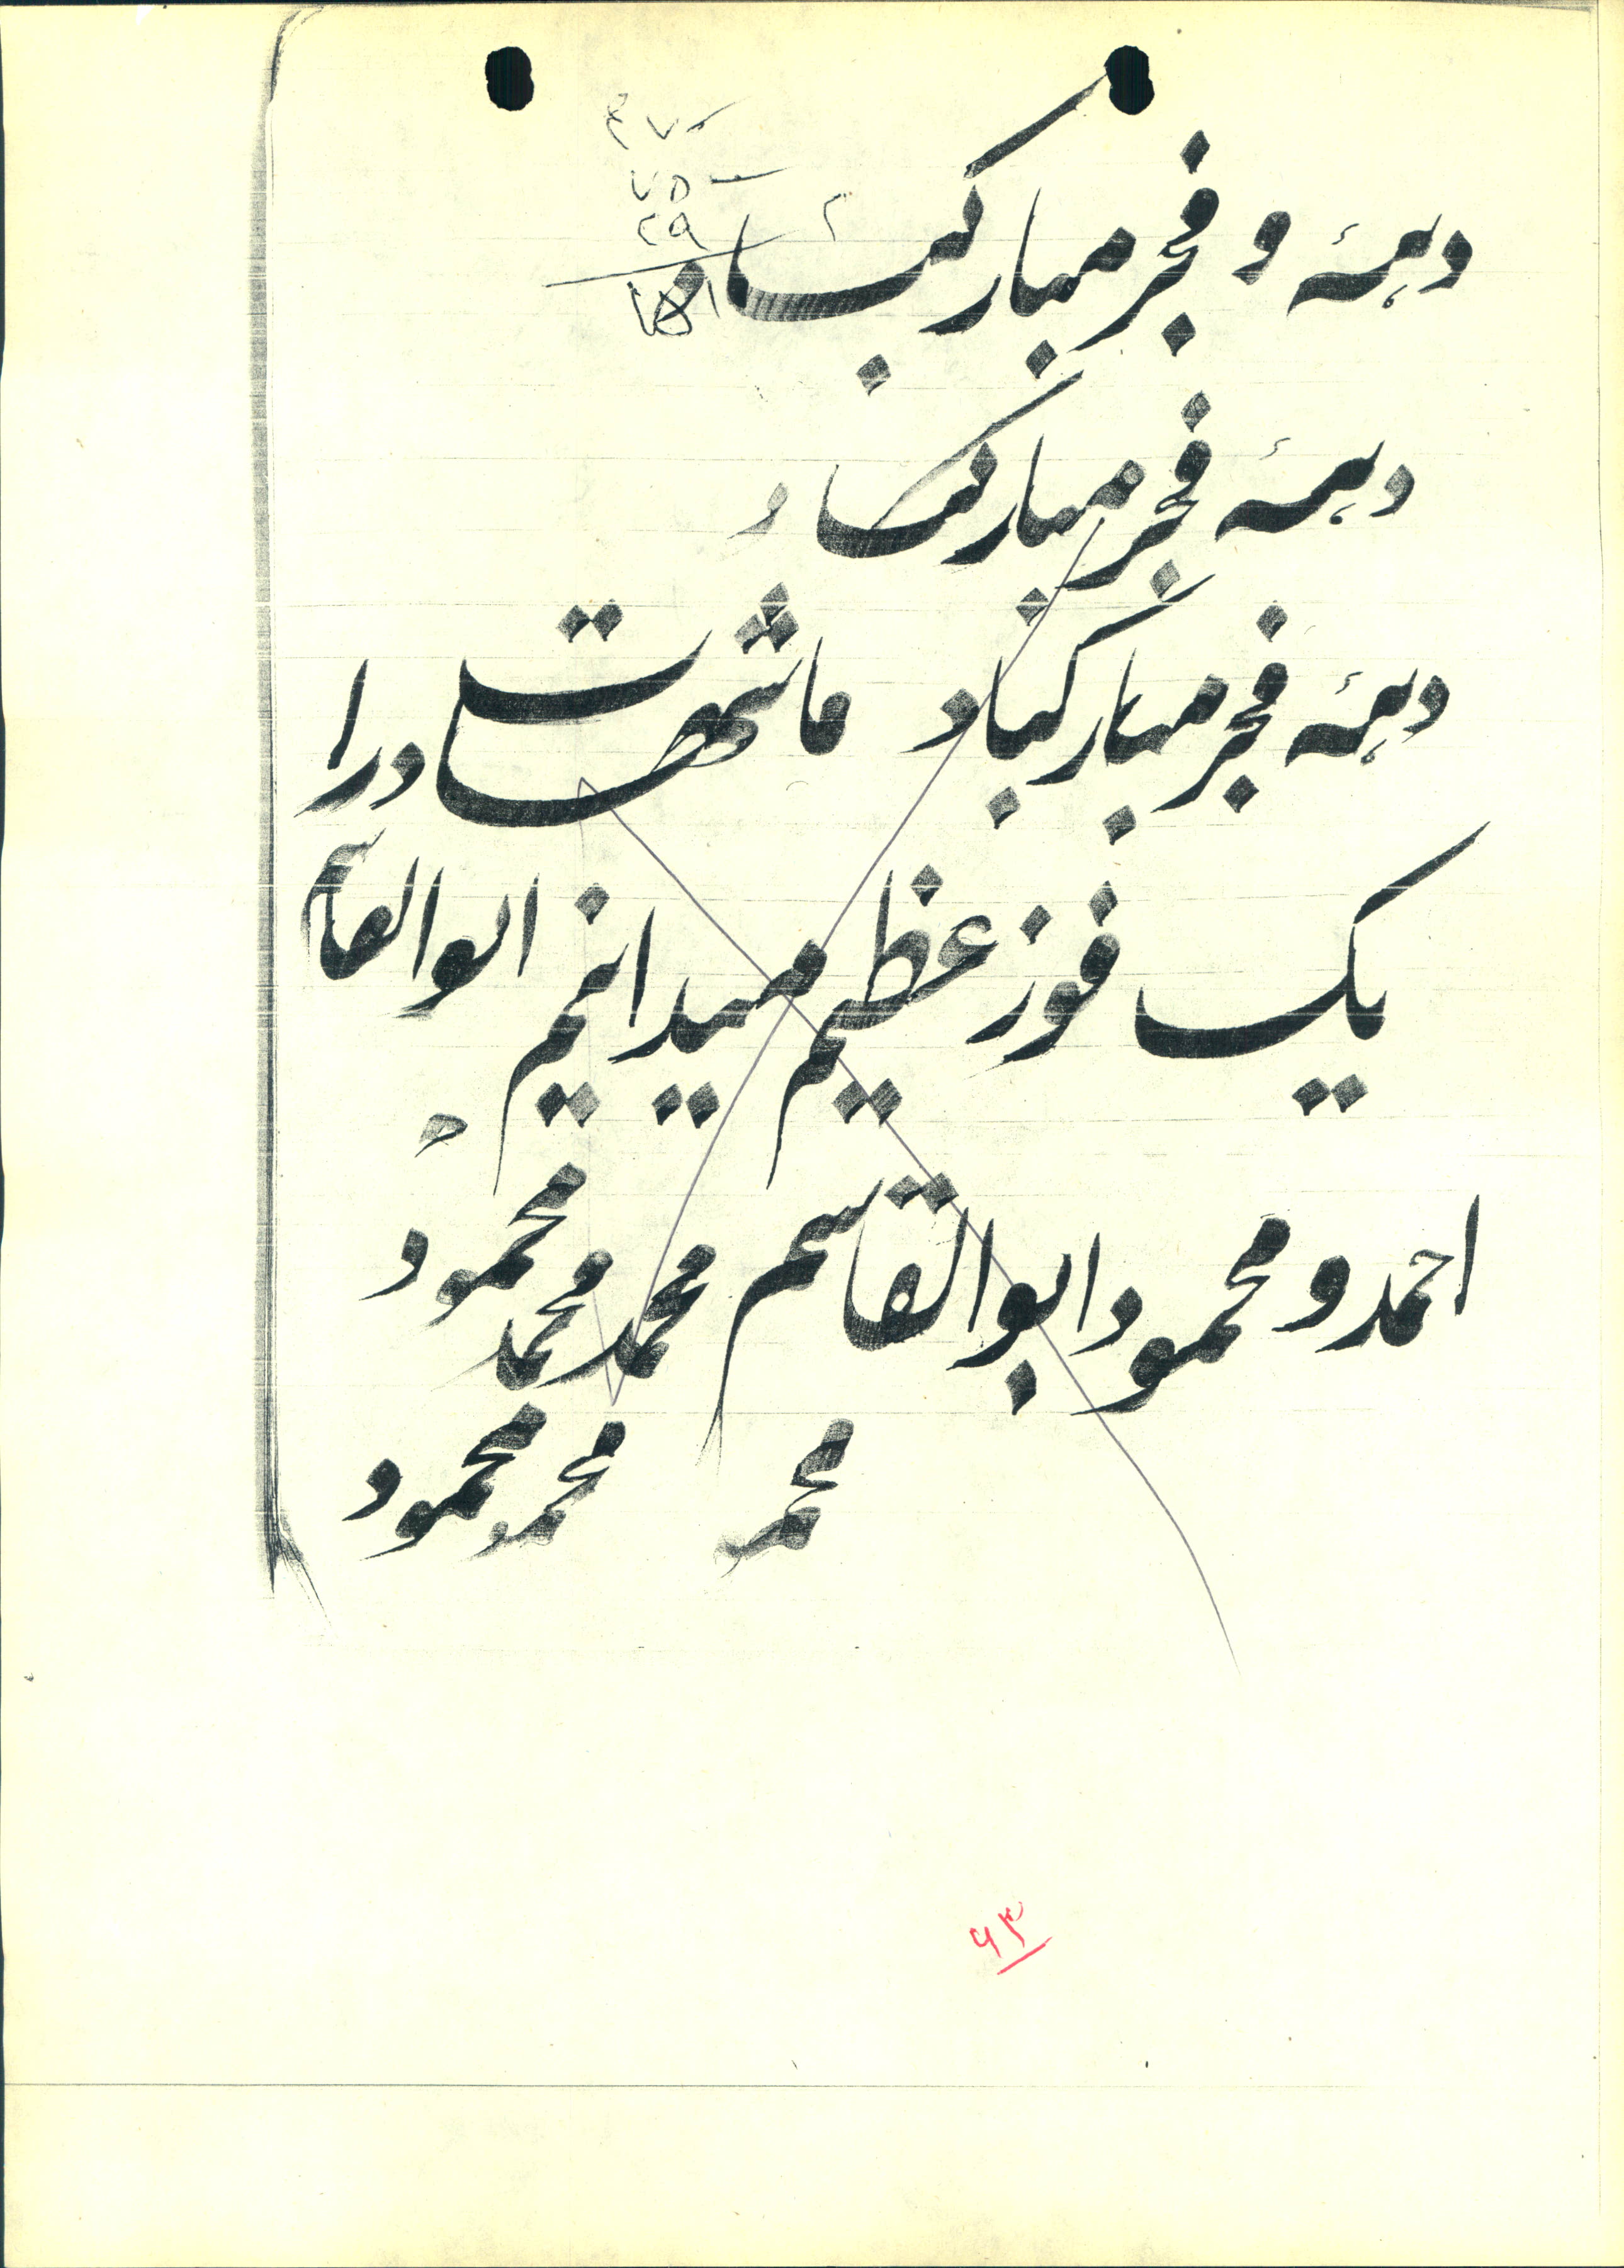 دههٔ و فجر مبارکباد
دههٔ فجر مبارکباد
دههٔ فجر مبارکباد ما شهادت را
یک فوز عظیم میدانیم ابوالقاسم
احمد و محمود ابوالقاسم محمد محمد محمود
محمد محمد محمود
۹۳